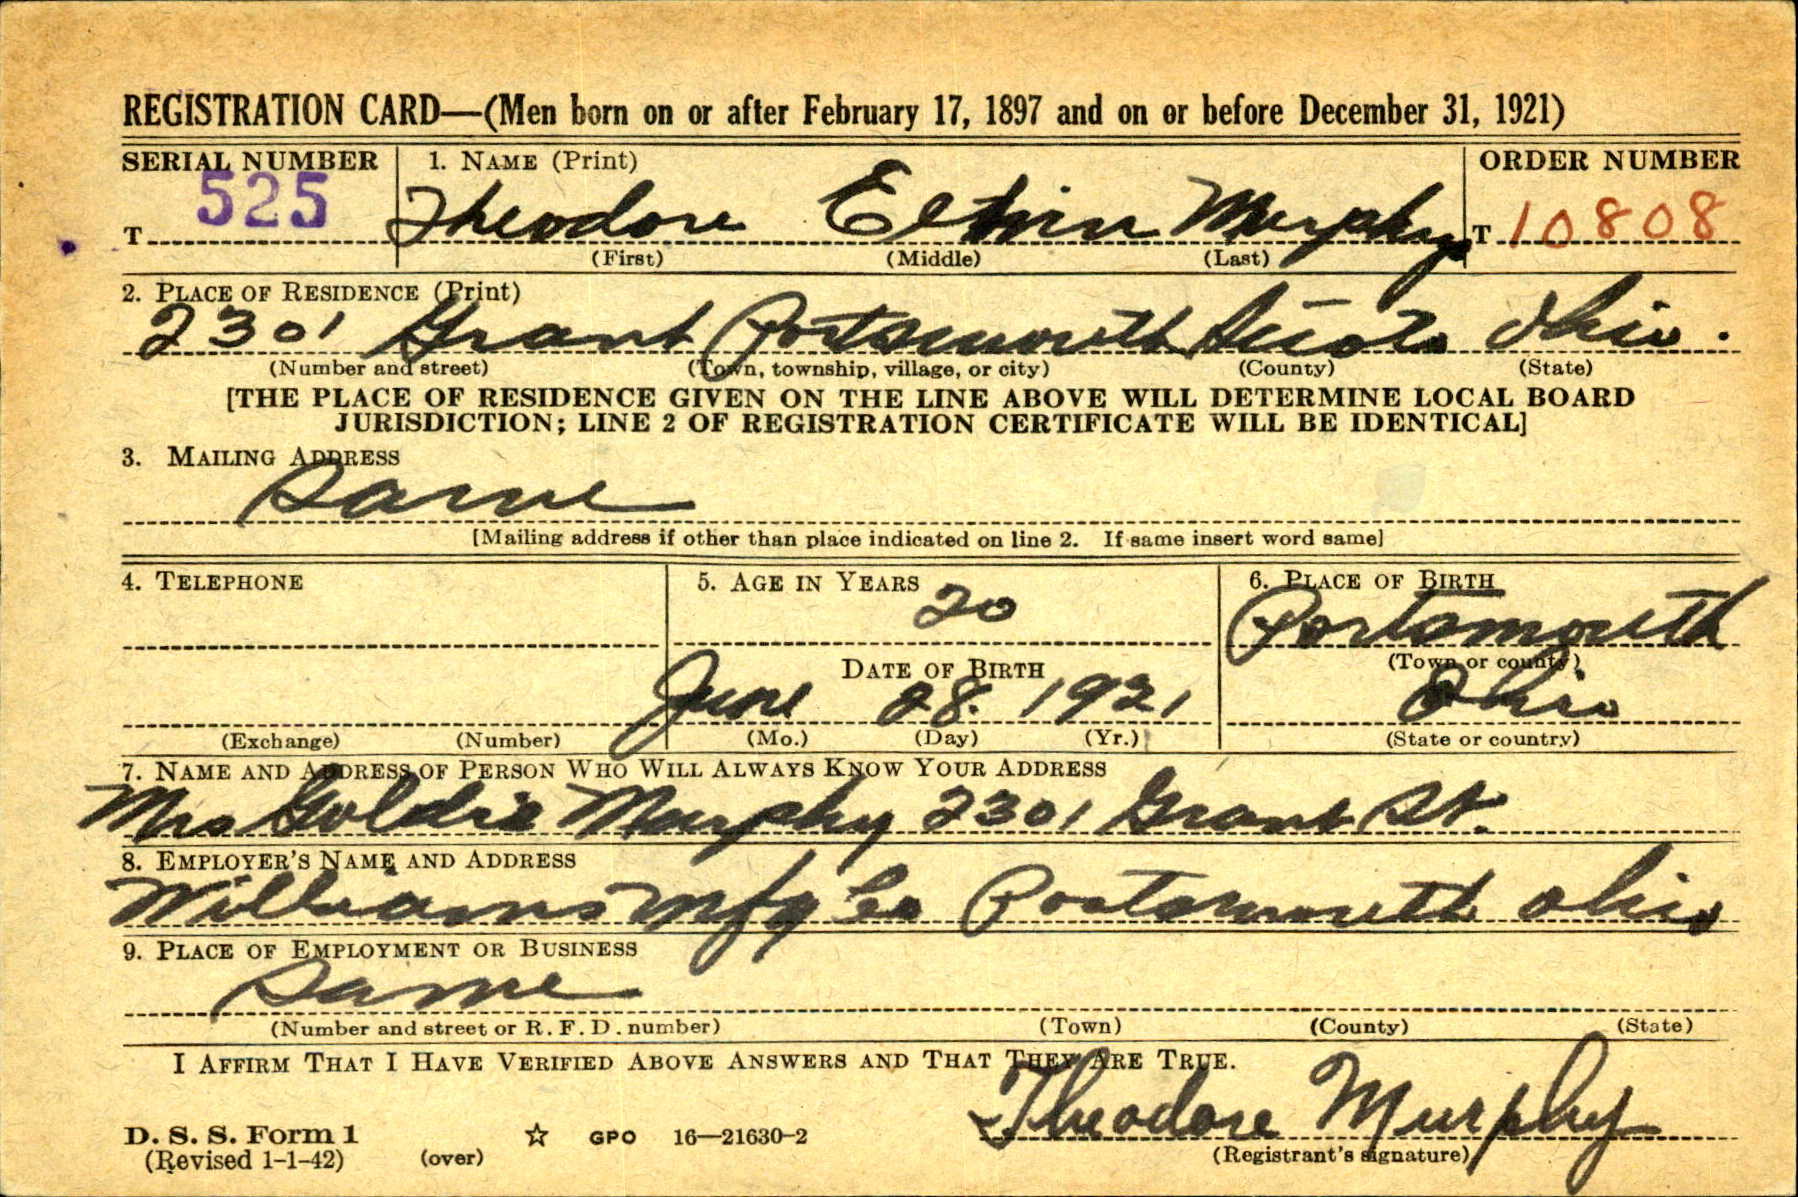 REGISTRATION CARD—(Men born on or after February 17, 1897 and on or before December 31, 1921)
SERIAL NUMBER 1. NAME (Print) ORDER NUMBER
T 525 Theodore Murphy T 10808
(First) (Middle) (Last)
2. PLACE OF RESIDENCE (Print)
2301 Grant Portsmouth Scioto Ohio.
(Number and street) (Town, township, village, or city) (County) (State)
[THE PLACE OF RESIDENCE GIVEN ON THE LINE ABOVE WILL DETERMINE LOCAL BOARD
JURISDICTION; LINE 2 OF REGISTRATION CERTIFICATE WILL BE IDENTICAL]
3. MAILING ADDRESS
Same
[Mailing address if other than place indicated on line 2. If same insert word same]
4. TELEPHONE 5. AGE IN YEARS 6. PLACE OF BIRTH
20 Portsmouth
DATE OF BIRTH (Town or county)
June 28. 1921 Ohio
(Exchange) (Number) (Mo.) (Day) (Yr.) (State or country)
7. NAME AND ADDRESS OF PERSON WHO WILL ALWAYS KNOW YOUR ADDRESS
Mrs Goldie Murphy 2301 Grant St.
8. EMPLOYER'S NAME AND ADDRESS
Williams Mfg Co Portsmouth Ohio
9. PLACE OF EMPLOYMENT OR BUSINESS
Same
(Number and street or R. F. D. number) (Town) (County) (State)
I AFFIRM THAT I HAVE VERIFIED ABOVE ANSWERS AND THAT THEY ARE TRUE.
Theodore Murphy
D. S. S. Form 1 GPO 16—21630-2
(Revised 1-1-42) (over) (Registrant's signature)